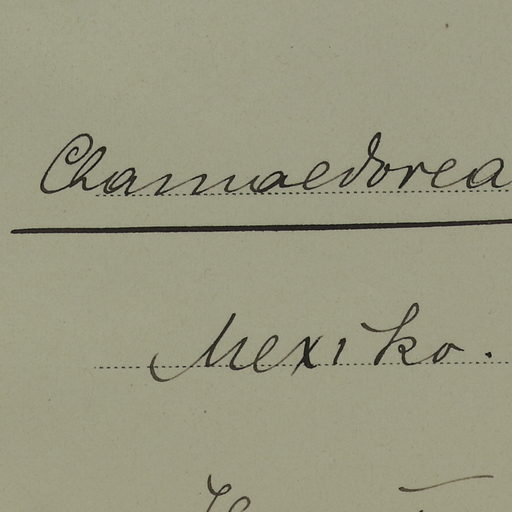 Chamaedorea
Mexiko.